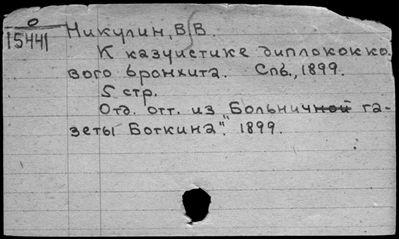 0
15441
Никулин, В.В.
К казуистике диплококко-
вого бронхита. Спб., 1899.
5 стр.
Отд. отт. из „Больничной га-
зеты Боткина". 1899.